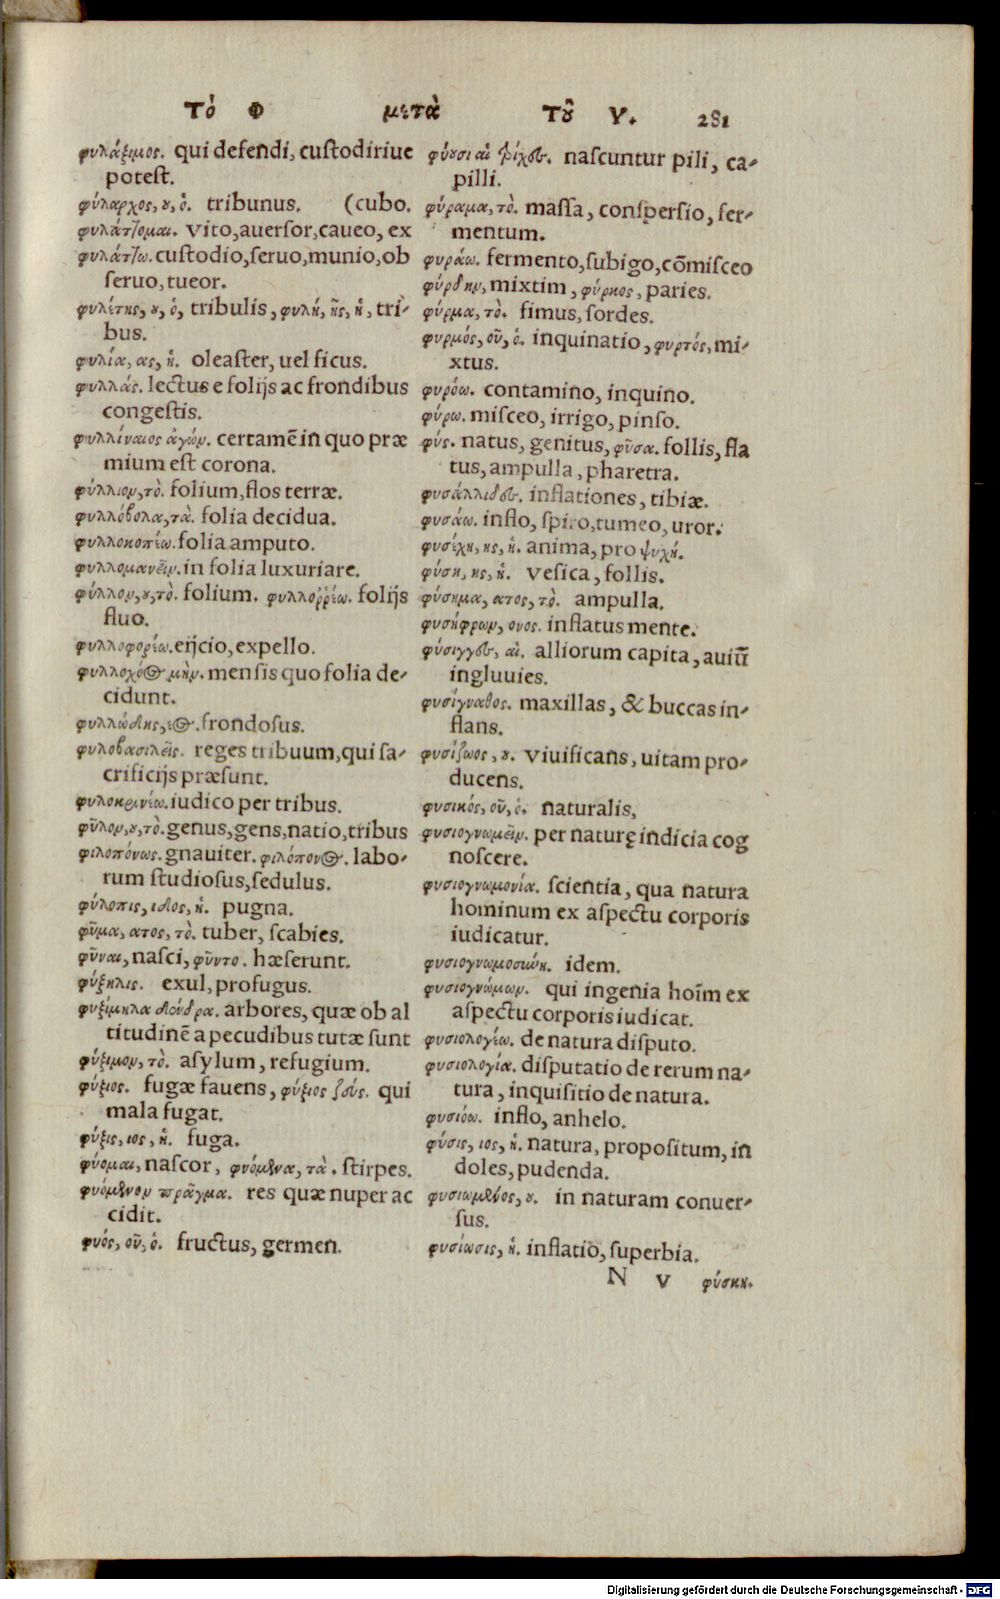 Τὸ Φ μετὰ τοῦ Υ. 281
φυλάξιμος. qui defendi, custodiriue
potest.
φύλαρχος, ου, ὁ. tribunus. (cubo.
φυλάττομαι. vito, auersor, caueo, ex
φυλάττω. custodio, seruo, munio, ob
seruo, tueor.
φυλέτης, ου, ὁ, tribulis, φυλή, ῆς, ἡ, tri-
bus.
φυλία, ας, ἡ. oleaster, uel ficus.
φυλλάς. lectus e folijs ac frondibus
congestis.
φυλλίναιος ἀγών. certamē in quo præ
mium est corona.
φύλλιον, τὸ. folium, flos terræ.
φυλλόβολα, τὰ. folia decidua.
φυλλοκοπέω. folia amputo.
φυλλομανεῖν. in folia luxuriare.
φύλλον, ου, τὸ. folium. φυλλορρέω. folijs
fluo.
φυλλοφορέω. eijcio, expello.
φυλλοχόος μὴν. mensis quo folia de-
cidunt.
φυλλώδης, εος. frondosus.
φυλοβασιλεῖς. reges tribuum, qui sa-
crificijs præsunt.
φυλοκρινέω. iudico per tribus.
φῦλον, ου, τὸ. genus, gens, natio, tribus
φιλοπόνως. gnauiter. φιλόπονος. labo-
rum studiosus, sedulus.
φύλοπις, ιδος, ἡ. pugna.
φῦμα, ατος, τὸ. tuber, scabies.
φῦναι, nasci, φῦντο. hæserunt.
φύξηλις. exul, profugus.
φυξίμηλα δένδρα. arbores, quæ ob al
titudinē a pecudibus tutæ sunt
φύξιμον, τὸ. asylum, refugium.
φύξιος. fugæ fauens, φύξιος ζεύς. qui
mala fugat.
φύξις, ιος, ἡ. fuga.
φύομαι, nascor, φυόμενα, τὰ. stirpes.
φυόμενον πρᾶγμα. res quæ nuper ac
cidit.
φυός, οῦ, ὁ. fructus, germen.
φύουσι αἱ τρίχες. nascuntur pili, ca-
pilli.
φύραμα, τὸ. massa, conspersio, fer-
mentum.
φυράω. fermento, subigo, cōmisceo
φύρδην, mixtim, φύρκος, paries.
φύρμα, τὸ. fimus, sordes.
φυρμός, οῦ, ὁ. inquinatio, φυρτός, mi-
xtus.
φυρόω. contamino, inquino.
φύρω. misceo, irrigo, pinso.
φύς. natus, genitus, φῦσα. follis, fla
tus, ampulla, pharetra.
φυσάλλιδες. inflationes, tibiæ.
φυσάω. inflo, spiro, tumeo, uror.
φυσέχη, ης, ἡ. anima, pro ψυχή.
φύση, ης, ἡ. vesica, follis.
φύσημα, ατος, τὸ. ampulla.
φυσήφρων, ονος. inflatus mente.
φύσιγγες, αἱ. alliorum capita, auiū
ingluuies.
φυσίγναθος. maxillas, & buccas in-
flans.
φυσίζωος, ου. viuificans, uitam pro-
ducens.
φυσικός, οῦ, ὁ. naturalis,
φυσιογνωμεῖν. per naturę indicia cog
noscere.
φυσιογνωμονία. scientia, qua natura
hominum ex aspectu corporis
iudicatur.
φυσιογνωμοσύνη. idem.
φυσιογνώμων. qui ingenia hoīm ex
aspectu corporis iudicat.
φυσιολογέω. de natura disputo.
φυσιολογία. disputatio de rerum na-
tura, inquisitio de natura.
φυσιόω. inflo, anhelo.
φύσις, ιος, ἡ. natura, propositum, in
doles, pudenda.
φυσιωμένος, ου. in naturam conuer-
sus.
φυσίωσις, ἡ. inflatio, superbia.
N v φύσκη.
Digitalisierung gefördert durch die Deutsche Forschungsgemeinschaft - DFG